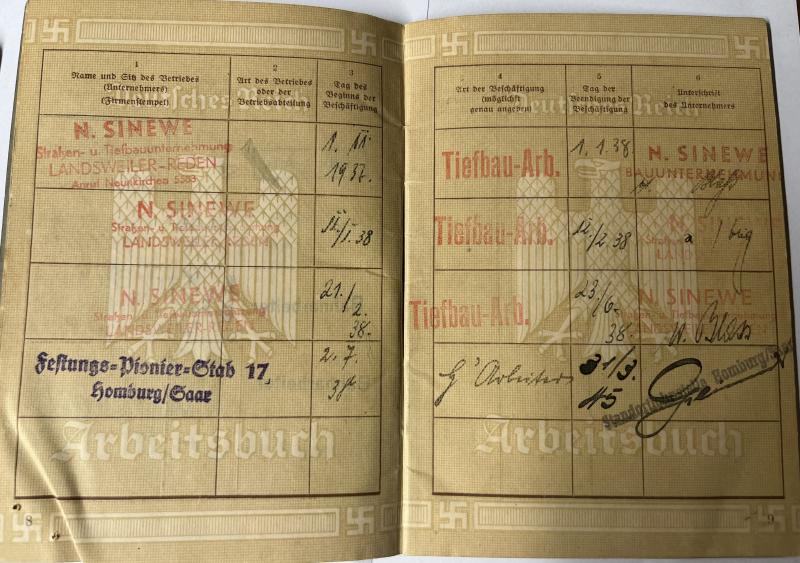 1
Name und Sitz des Betriebes
(Unternehmers)
(Firmenstempel)
2
Art des Betriebes
oder der
Betriebsabteilung
3
Tag des
Beginns der
Beschäftigung
N. SINEWE
Straßen- u. Tiefbauunternehmung
LANDSWEILER-REDEN
Anruf Neunkirchen
1. II.
1937.
N. SINEWE
Straßen- u. Tiefbauunternehmung
LANDSWEILER-REDEN
38
N. SINEWE
Straßen- u. Tiefbauunternehmung
LANDSWEILER-REDEN
21./
2.
38.
Festungs=Pionier=Stab 17,
Homburg/Saar
2. 7.
38.
Arbeitsbuch
8
4
Art der Beschäftigung
(möglichst
genau angeben)
5
Tag der
Beendigung der
Beschäftigung
6
Unterschrift
des Unternehmers
Deutsches Reich
Tiefbau-Arb.
1. 1. 38.
N. SINEWE
BAUUNTERNEHMUNG
Tiefbau-Arb.
/2. 38
Tiefbau-Arb.
23./
6.
38.
N. SINEWE
Straßen- u. Tiefbauunternehmung
LANDSWEILER-REDEN
Arbeiter
31/3.
45
Homburg/Saar
Arbeitsbuch
9